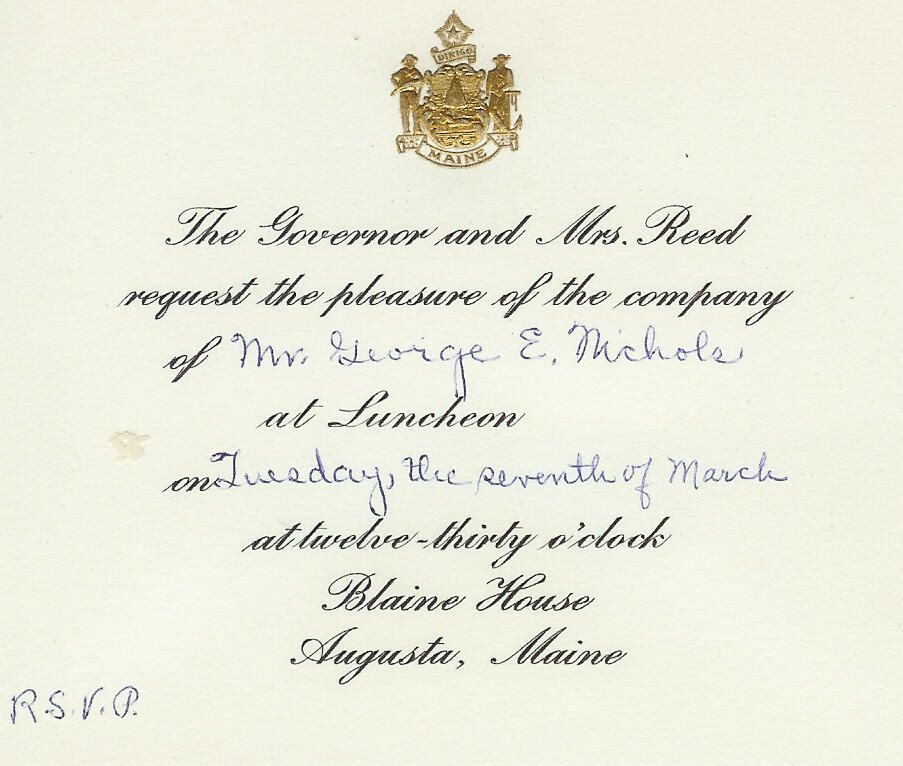 DIRIGO
MAINE
The Governor and Mrs. Reed
request the pleasure of the company
of Mr. George E. Nichols
at Luncheon
on Tuesday, the seventh of March
at twelve-thirty o'clock
Blaine House
Augusta, Maine
R.S.V.P.